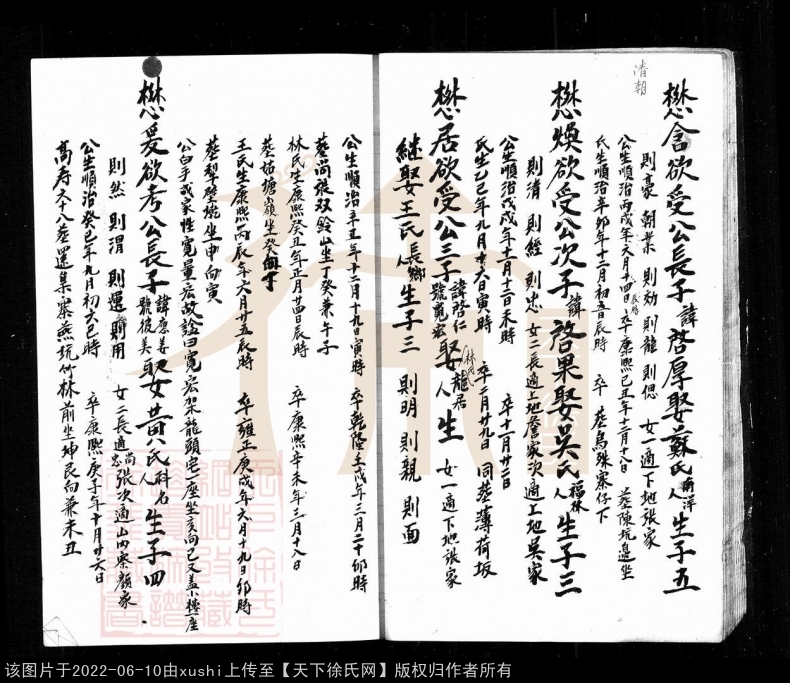 清朝
懋含欲受公長子諱啓厚娶蘇氏人南洋生子五
則豪 朝業 則効 則龍 則偲 女一適下地張家
公生順治丙戌年六月十四日辰時 卒康熙己丑年十二月十八日 葬陳坑邉坐
氏生順治辛卯年十二月初一日辰時 卒 葬烏殊寨仔下
懋煥欲受公次子諱啓果娶吳氏人福林生子三
則清 則經 則忠 女二長適上地詹家次適上地吳家
公生順治戊戌年十一月十二日未時 卒十一月廿二日
氏生乙巳年九月十六日寅時 卒二月廿九日 同葬薄荷坂
懋居欲受公三子諱啓仁號寬宏娶林氏人龍居生 女一適下地張家
継娶王氏人長鄉生子三 則明 則親 則面
公生順治辛丑年十二月十九日寅時 卒乾隆壬戌年三月二十卯時
葬尚張双鈴山坐丁癸兼午子
林氏生康熙癸丑年正月廿四日辰時 卒康熙辛未年三月十八日
葬姑塘嶺坐癸向丁
王氏生康熙丙辰年六月廿五辰時 卒雍正庚戌年六月十九日卯時
葬梨壁墘坐申向寅
公白手成家性寬量宏故諡曰寬宏架龍頭宅一座坐亥向巳又蓋小樓一座
懋爰欲考公長子諱啓姜號彼美娶黄氏人科名生子四
則然 則渭 則運 則用 女二長適尚忠張次適山內寨顏家
公生順治癸巳年九月初六巳時 卒康熙庚子年十月廿六日
高寿六十八葬還集寨燕坑竹林前坐坤艮向兼未丑
该图片于2022-06-10由xushi上传至【天下徐氏网】版权归作者所有